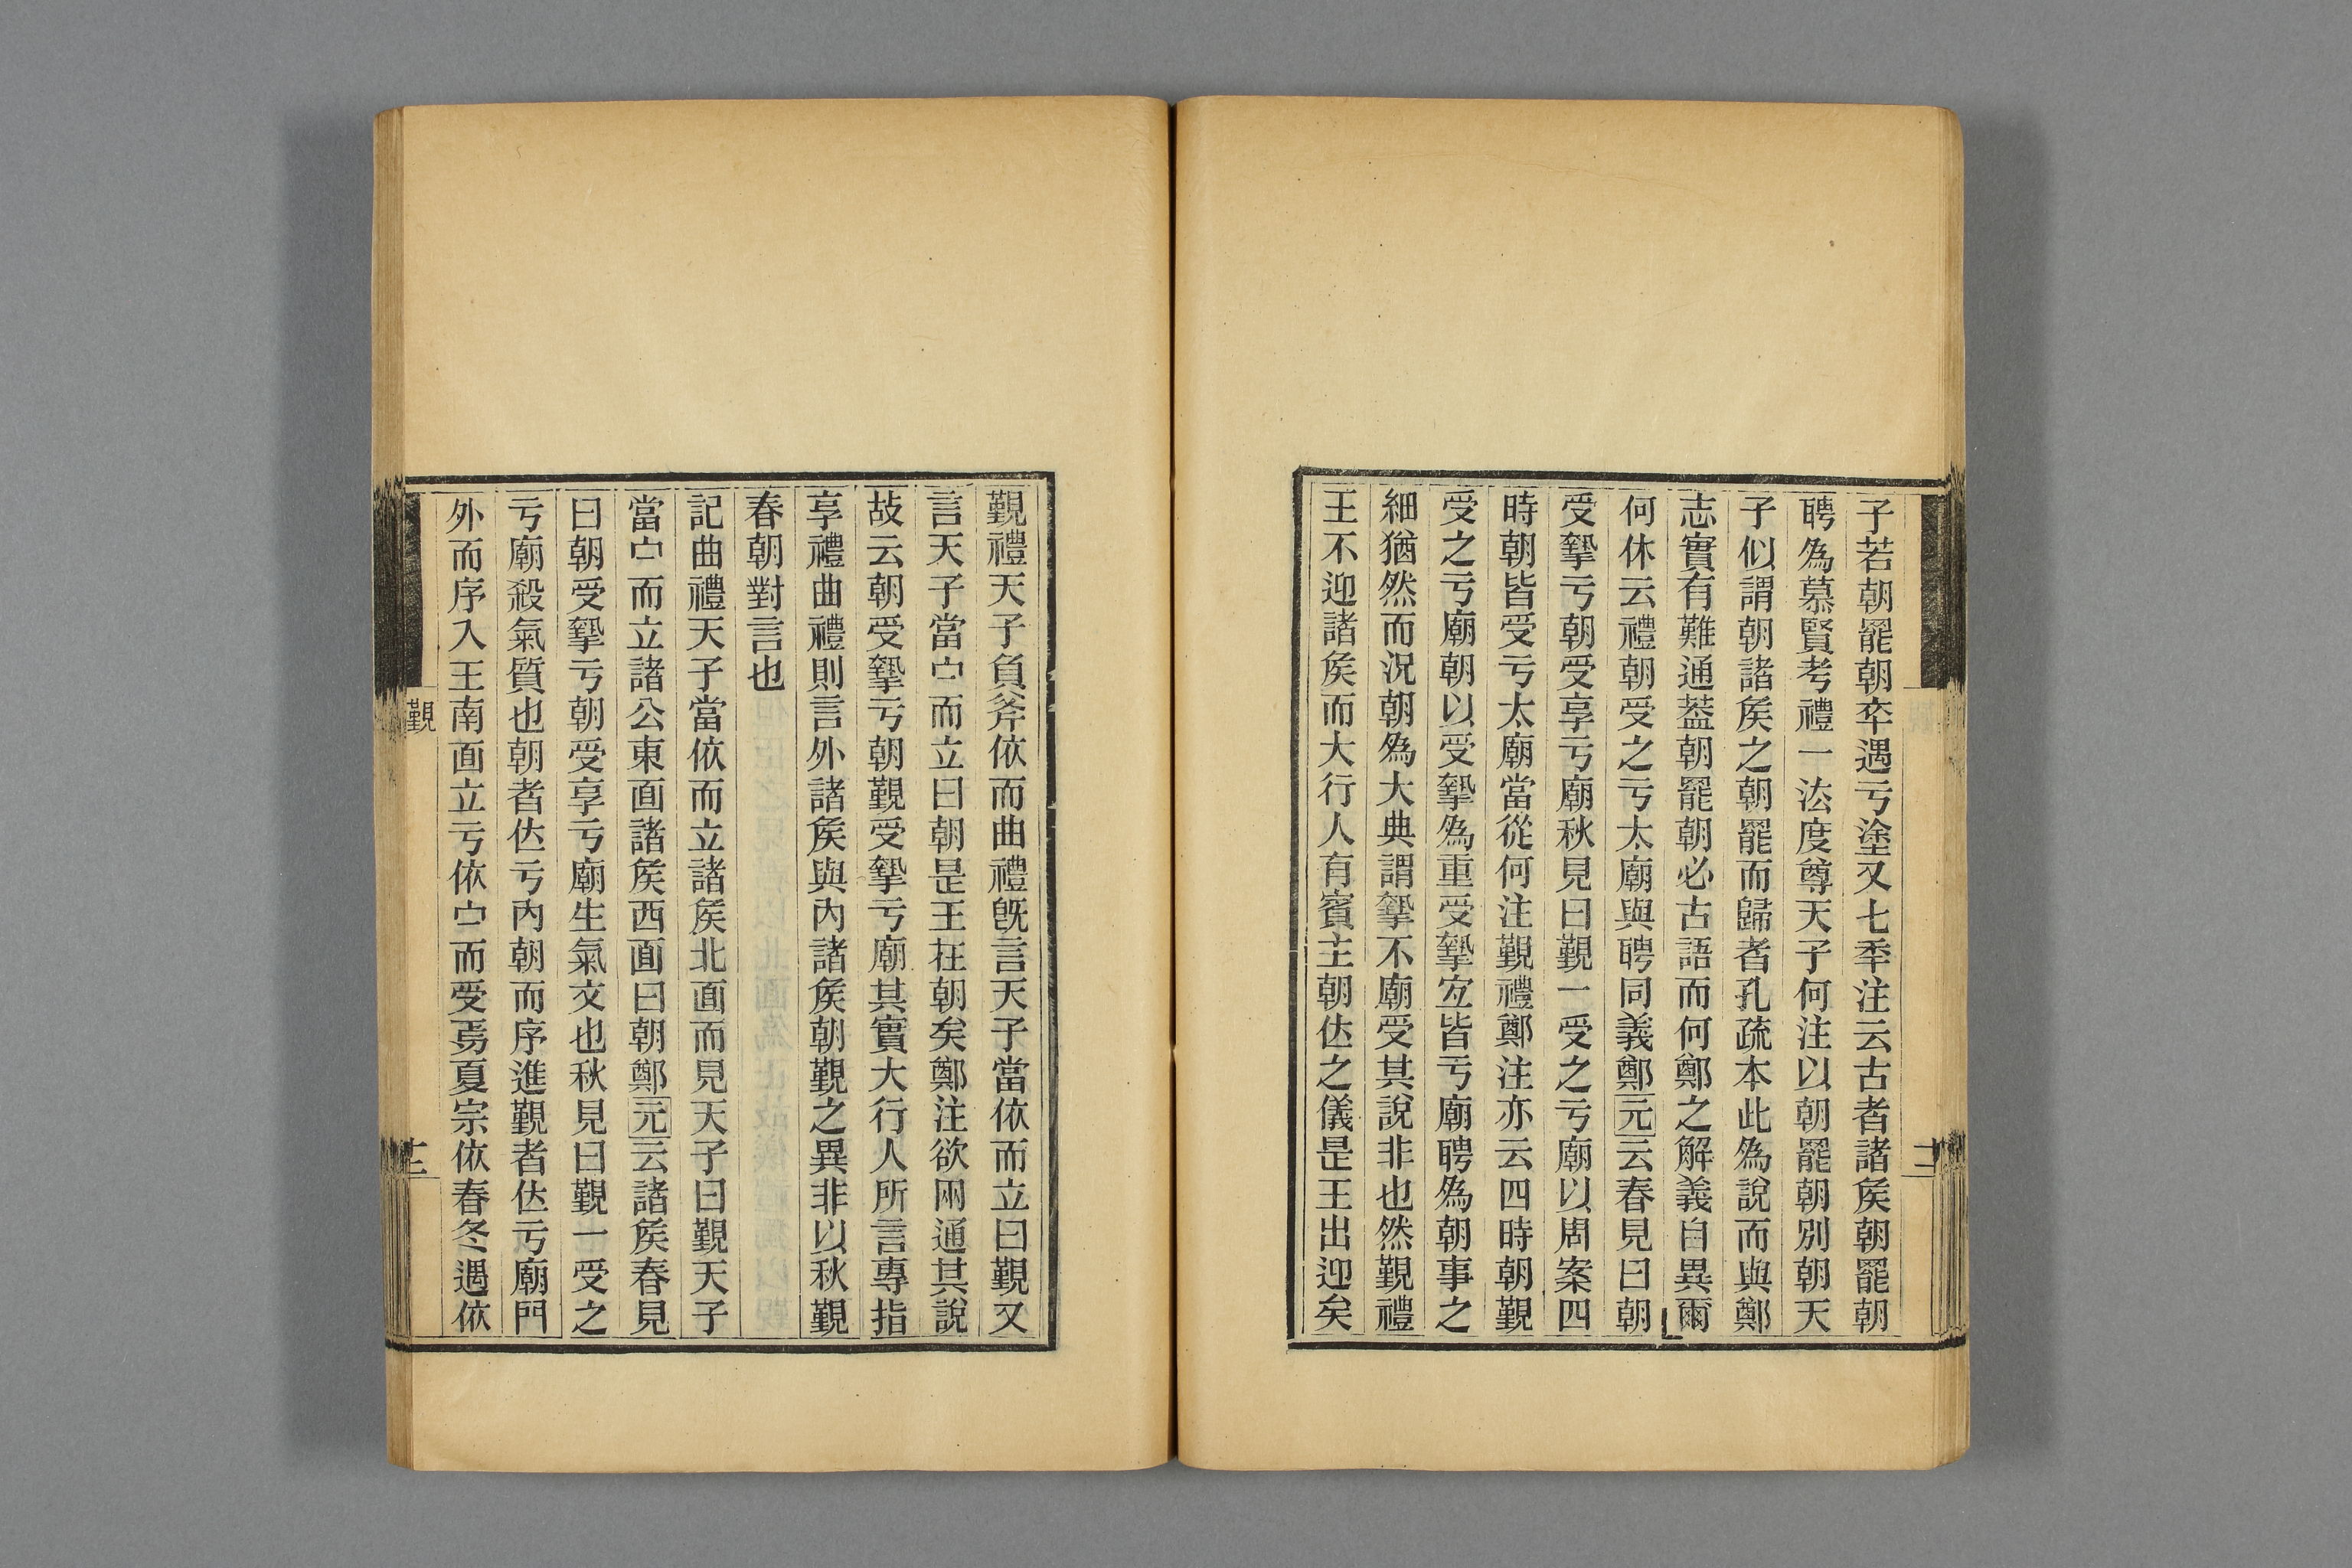 子若朝罷朝卒遇亏塗又七秊注云古者諸矦朝罷朝
聘爲慕賢考禮一法度尊天子何注以朝罷朝別朝天
子似謂朝諸矦之朝罷而歸者孔疏本此爲說而與鄭
志實有難通葢朝罷朝必古語而何鄭之解義自異爾
何休云禮朝受之亏太廟與聘同義鄭元云春見曰朝
受摯亏朝受享亏廟秋見曰覲一受之亏廟以周案四
時朝皆受亏太廟當從何注覲禮鄭注亦云四時朝覲
受之亏廟朝以受摯爲重受摯宐皆亏廟聘爲朝事之
細猶然而況朝爲大典謂摯不廟受其說非也然覲禮
王不迎諸矦而大行人有賓主朝位之儀是王出迎矣
覲禮天子負斧依而曲禮旣言天子當依而立曰覲又
言天子當宁而立曰朝是王在朝矣鄭注欲网通其說
故云朝受摯亏朝覲受摯亏廟其實大行人所言專指
享禮曲禮則言外諸矦與內諸矦朝覲之異非以秋覲
春朝對言也
記曲禮天子當依而立諸矦北面而見天子曰覲天子
當宁而立諸公東面諸矦西面曰朝鄭元云諸矦春見
曰朝受摯亏朝受享亏廟生氣文也秋見曰覲一受之
亏廟殺氣質也朝者位亏內朝而序進覲者位亏廟門
外而序入王南面立亏依宁而受焉夏宗依春冬遇依
覲
十二
十三